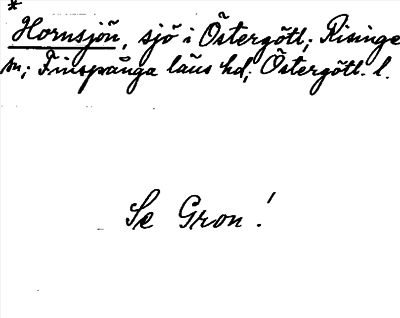 *
Hornsjön, sjö i Östergötl; Risinge
sn; Finspånga läns hd; Östergötl. l.
Se Gron!